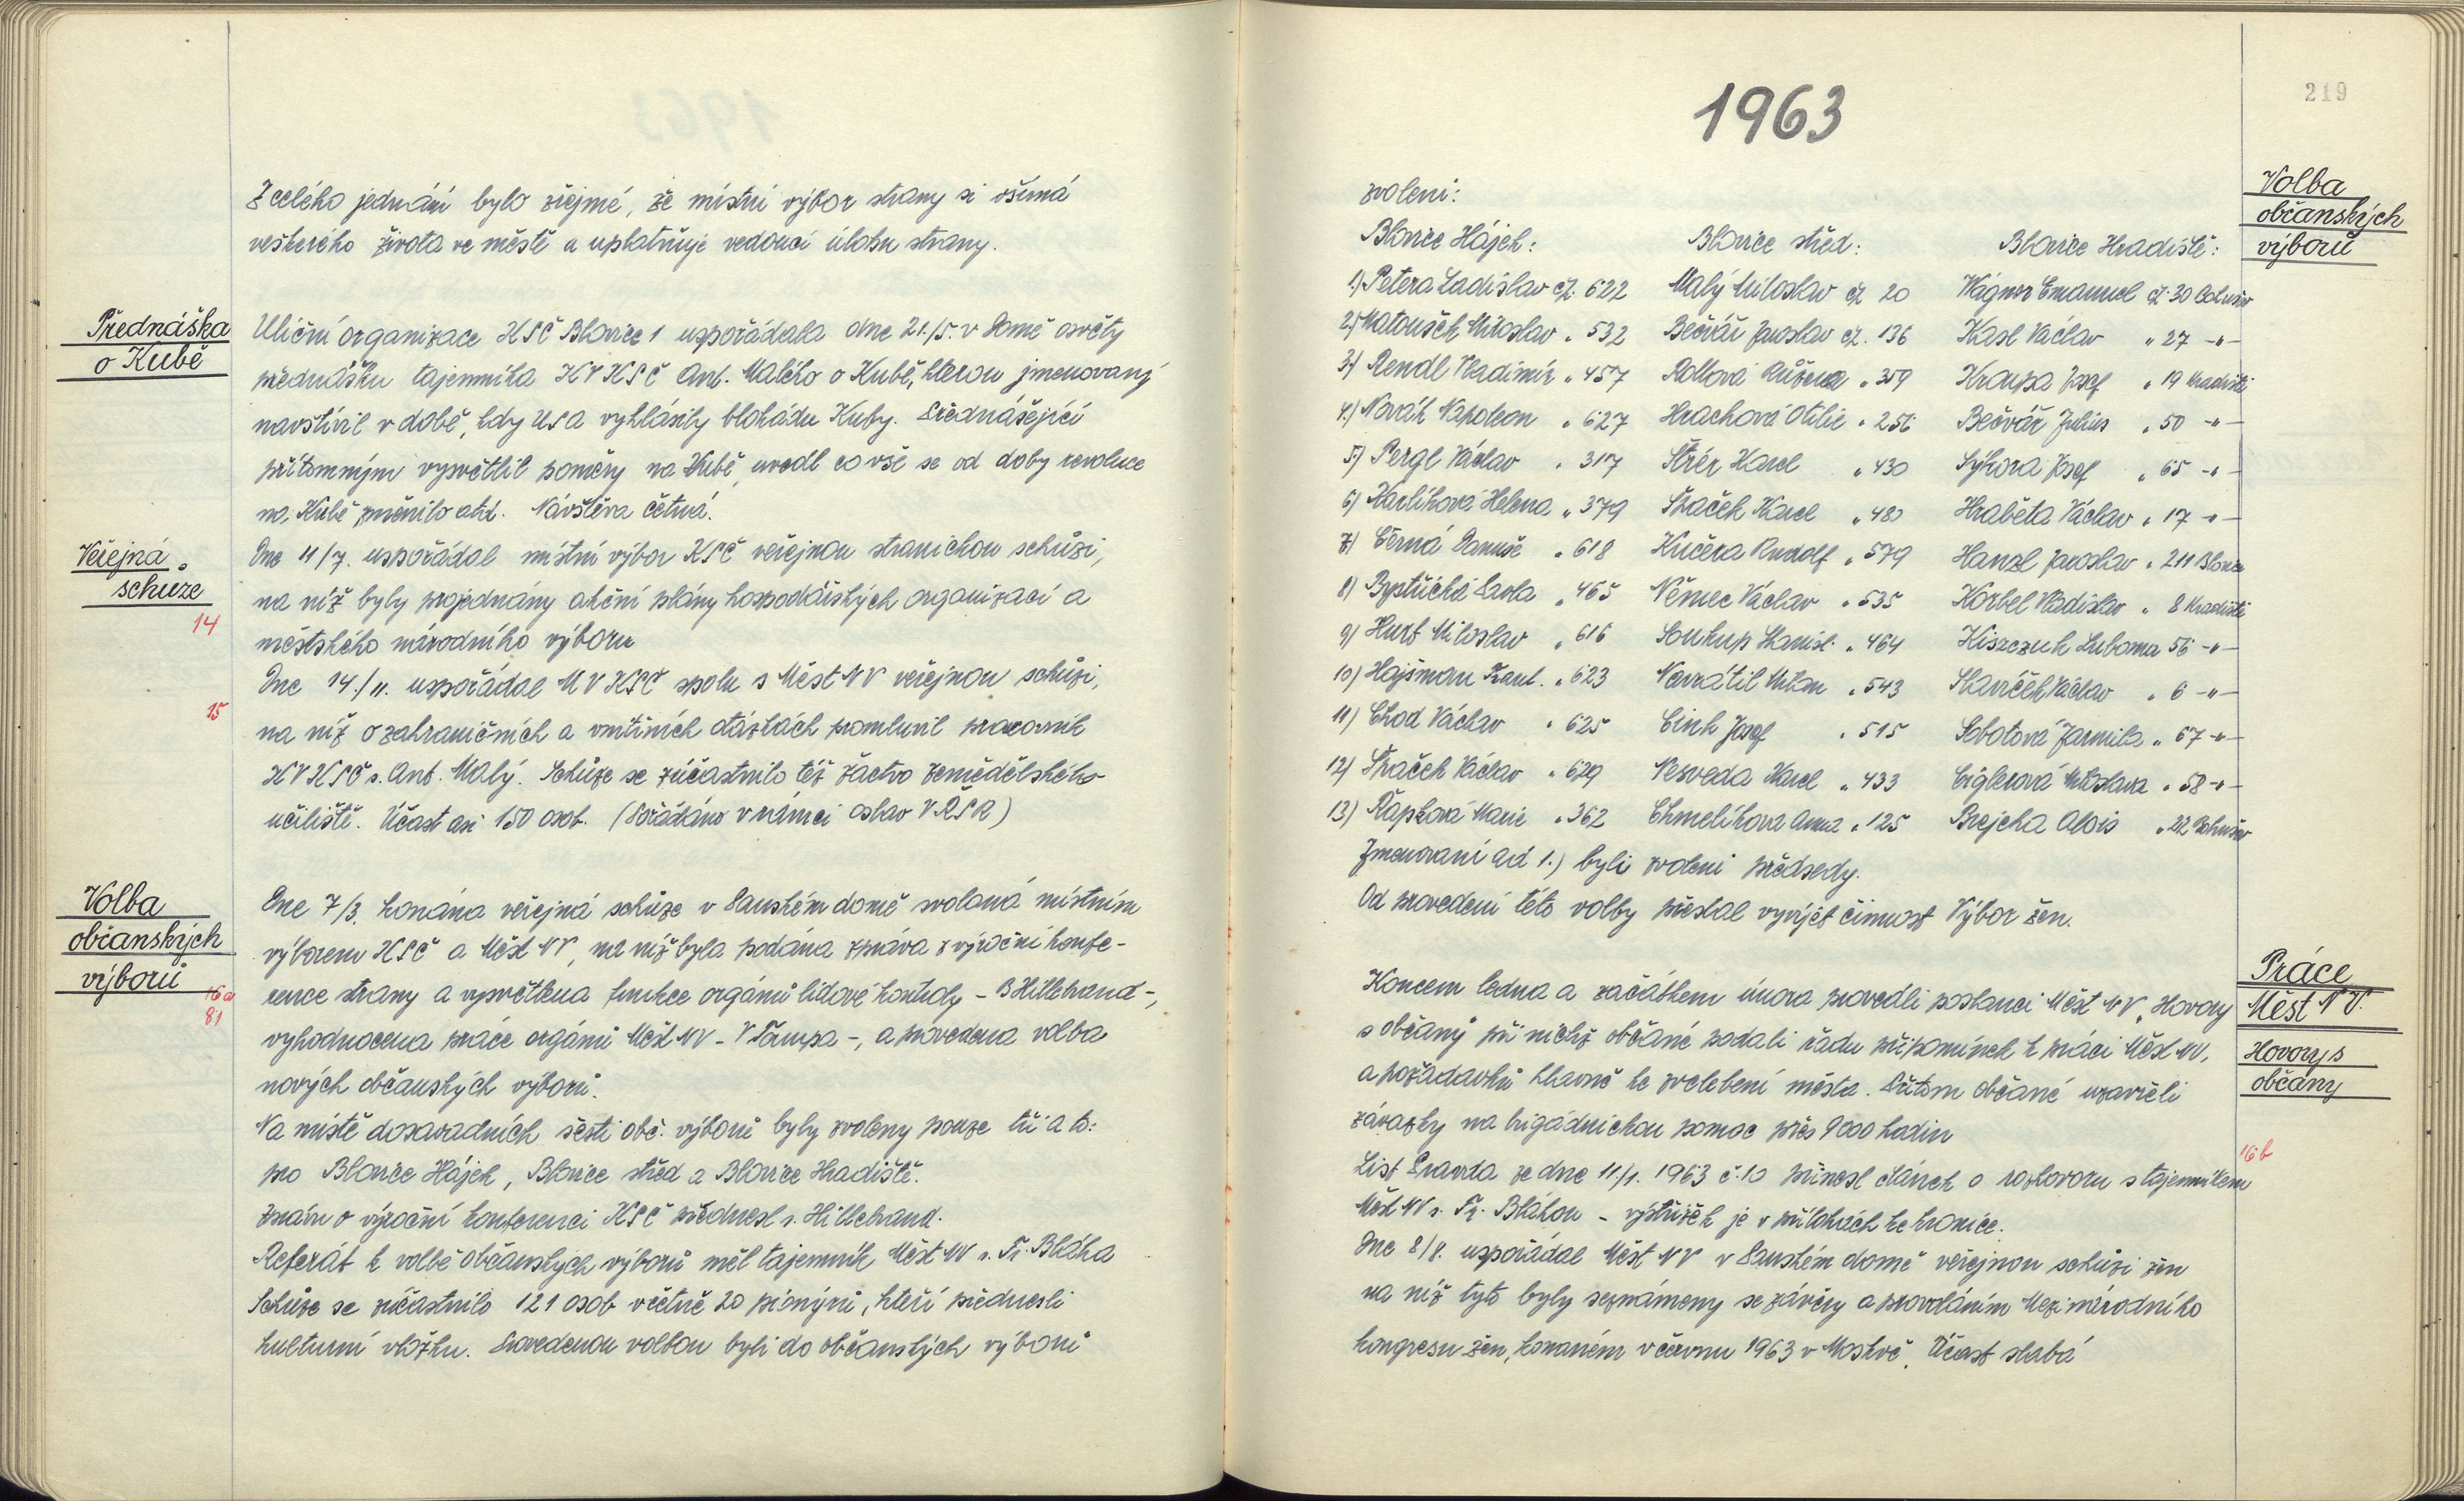 Z celého jednání bylo zřejmé, že místní výbor strany si všímá
veškerého života ve městě a uplatňuje vedoucí úlohu strany.
Přednáška
o Kubě
Uliční organizace KSČ Blovice 1 uspořádala dne 21./5. v Domě osvěty
přednášku tajemníka KV KSČ Ant. Malého o Kubě, kterou jmenovaný
navštívil v době, kdy USA vyhlásily blokádu Kuby. Přednášející
přítomným vysvětlil poměry na Kubě, uvedl co vše se od doby revoluce
na Kubě změnilo atd. Návštěva četná.
Veřejná
schuze
14
Dne 11/7. uspořádal místní výbor KSČ veřejnou stranickou schůzi,
na níž byly projednány akční plány hospodářských organizací a
městského národního výboru
15
Dne 14./11. uspořádal MV KSČ spolu s Měst NV veřejnou schůzi,
na níž o zahraničních a vnitřních otázkách promluvil pracovník
KV KSČ s. Ant. Malý. Schůze se zúčastnilo též žactvo zemědělského
učiliště. Účast asi 150 osob. (Pořádáno v rámci oslav VŘSR)
Volba
občanských
výborů
16a
81
Dne 7/3. konána veřejná schůze v Panském domě svolaná místním
výborem KSČ a Měst NV, na níž byla podána zpráva z výroční konfe-
rence strany a vysvětlena funkce orgánů lidové kontroly - B Hillebrand -,
vyhodnocena práce orgánů Měst NV - V Tůmpa -, a provedena volba
nových občanských výborů.
Na místě dosavadních šesti obč. výborů byly zvoleny pouze tři a to:
pro Blovice Hájek, Blovice střed a Blovice Hradiště.
Zprávu o výroční konferenci KSČ přednesl s. Hillebrand.
Referát k volbě občanských výborů měl tajemník Měst NV s. Fr. Bláha
Schůze se zúčastnilo 121 osob včetně 20 pionýrů, kteří přednesli
kulturní vložku. Provedenou volbou byli do občanských výborů
1963
219
Volba
občanských
výborů
zvoleni:
Blovice Hájek: Blovice střed: Blovice Hradiště:
1.) Petera Ladislav čp. 622 Malý Miloslav čp 20 Wágner Emanuel čp. 30 Bohušov
2.) Matoušek Miloslav „ 532 Bečvář Jaroslav čp. 136 Kasl Václav „ 27 -"-
3.) Rendl Vladimír „ 457 Rollová Růžena „ 359 Kroupa Josef „ 19 Hradiště
4.) Novák Napoleon „ 627 Hrachová Otilie „ 256 Bečvář Julius „ 50 -"-
5.) Pergl Václav „ 317 Štrér Karel „ 430 Sýkora Josef „ 65 -"-
6.) Karlíková Helena „ 379 Ptáček Karel „ 480 Hraběta Václav „ 17 -"-
7.) Černá Danuše „ 618 Kučera Rudolf „ 579 Hanzl Jaroslav „ 211 Blovice
8.) Bystřická Pavla „ 465 Němec Václav „ 535 Korbel Vladislav „ 8 Hradiště
9.) Hurt Miloslav „ 616 Soukup Stanisl. „ 464 Kiszczuk Lubomír 56 -"-
10.) Hajšman Frant. „ 623 Navrátil Milan „ 543 Slavíček Václav „ 6 -"-
11.) Chod Václav „ 625 Cink Josef „ 515 Sobotová Jarmila „ 67 -"-
12.) Ptáček Václav „ 629 Nesveda Karel „ 433 Ciglerová Miloslava „ 58 -"-
13.) Řápková Marie „ 362 Chmelíková Anna „ 125 Brejcha Alois „ 22 Bohušov
Jmenovaní ad 1.) byli zvoleni předsedy.
Od provedení této volby přestal vyvíjet činnost Výbor žen.
Práce
Měst NV.
Hovory s
občany
Koncem ledna a začátkem února provedli poslanci Měst NV „Hovory
s občany při nichž občané podali řadu připomínek k práci Měst NV,
a požadavků hlavně ke zvelebení města. Přitom občané uzavřeli
závazky na brigádnickou pomoc přes 9000 hodin
16b
List Pravda ze dne 11./1. 1963 č. 10 přinesl článek o rozhovoru s tajemníkem
Měst NV s. Fr. Bláhou - výstřižek je v přílohách ke kronice.
Dne 8/8. uspořádal Měst NV v Panském domě veřejnou schůzi žen
na níž tyto byly seznámeny se závěry a provoláním Mezinárodního
kongresu žen, konaném v červnu 1963 v Moskvě. Účast slabá